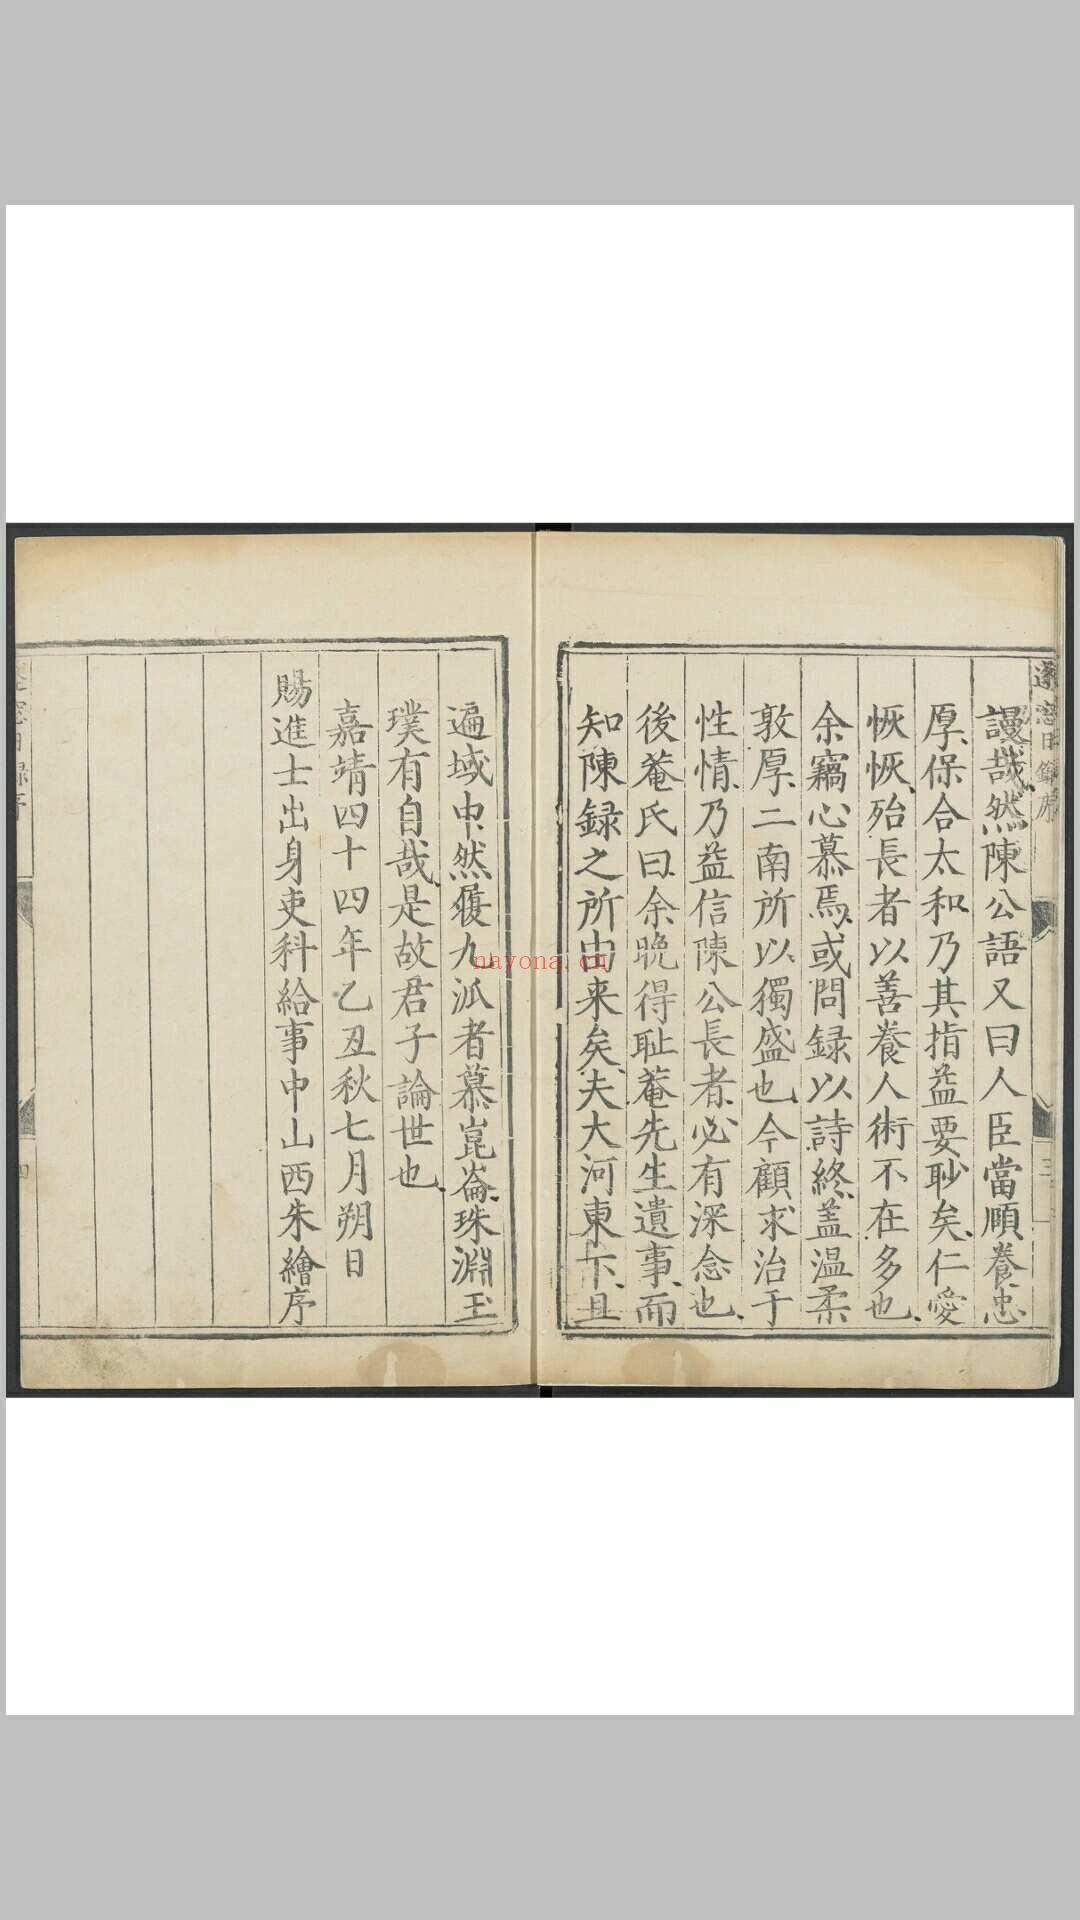 窓日録序
謾哉然陳公語又曰人臣當順養忠
厚保合太和乃其指益要眇矣仁愛
恢恢殆長者以善養人術不在多也
余竊心慕焉或問録以詩終盖温柔
敦厚二南所以獨盛也今顧求治于
性情乃益信陳公長者必有深念也
後菴氏曰余晩得耻菴先生遺事而
知陳録之所由来矣夫大河東卞且
三
遍域中然履九泒者慕崑崙珠淵玉
璞有自哉是故君子論世也
嘉靖四十四年乙丑秋七月朔日
賜進士出身吏科給事中山西朱繪序
四
nayona.cn